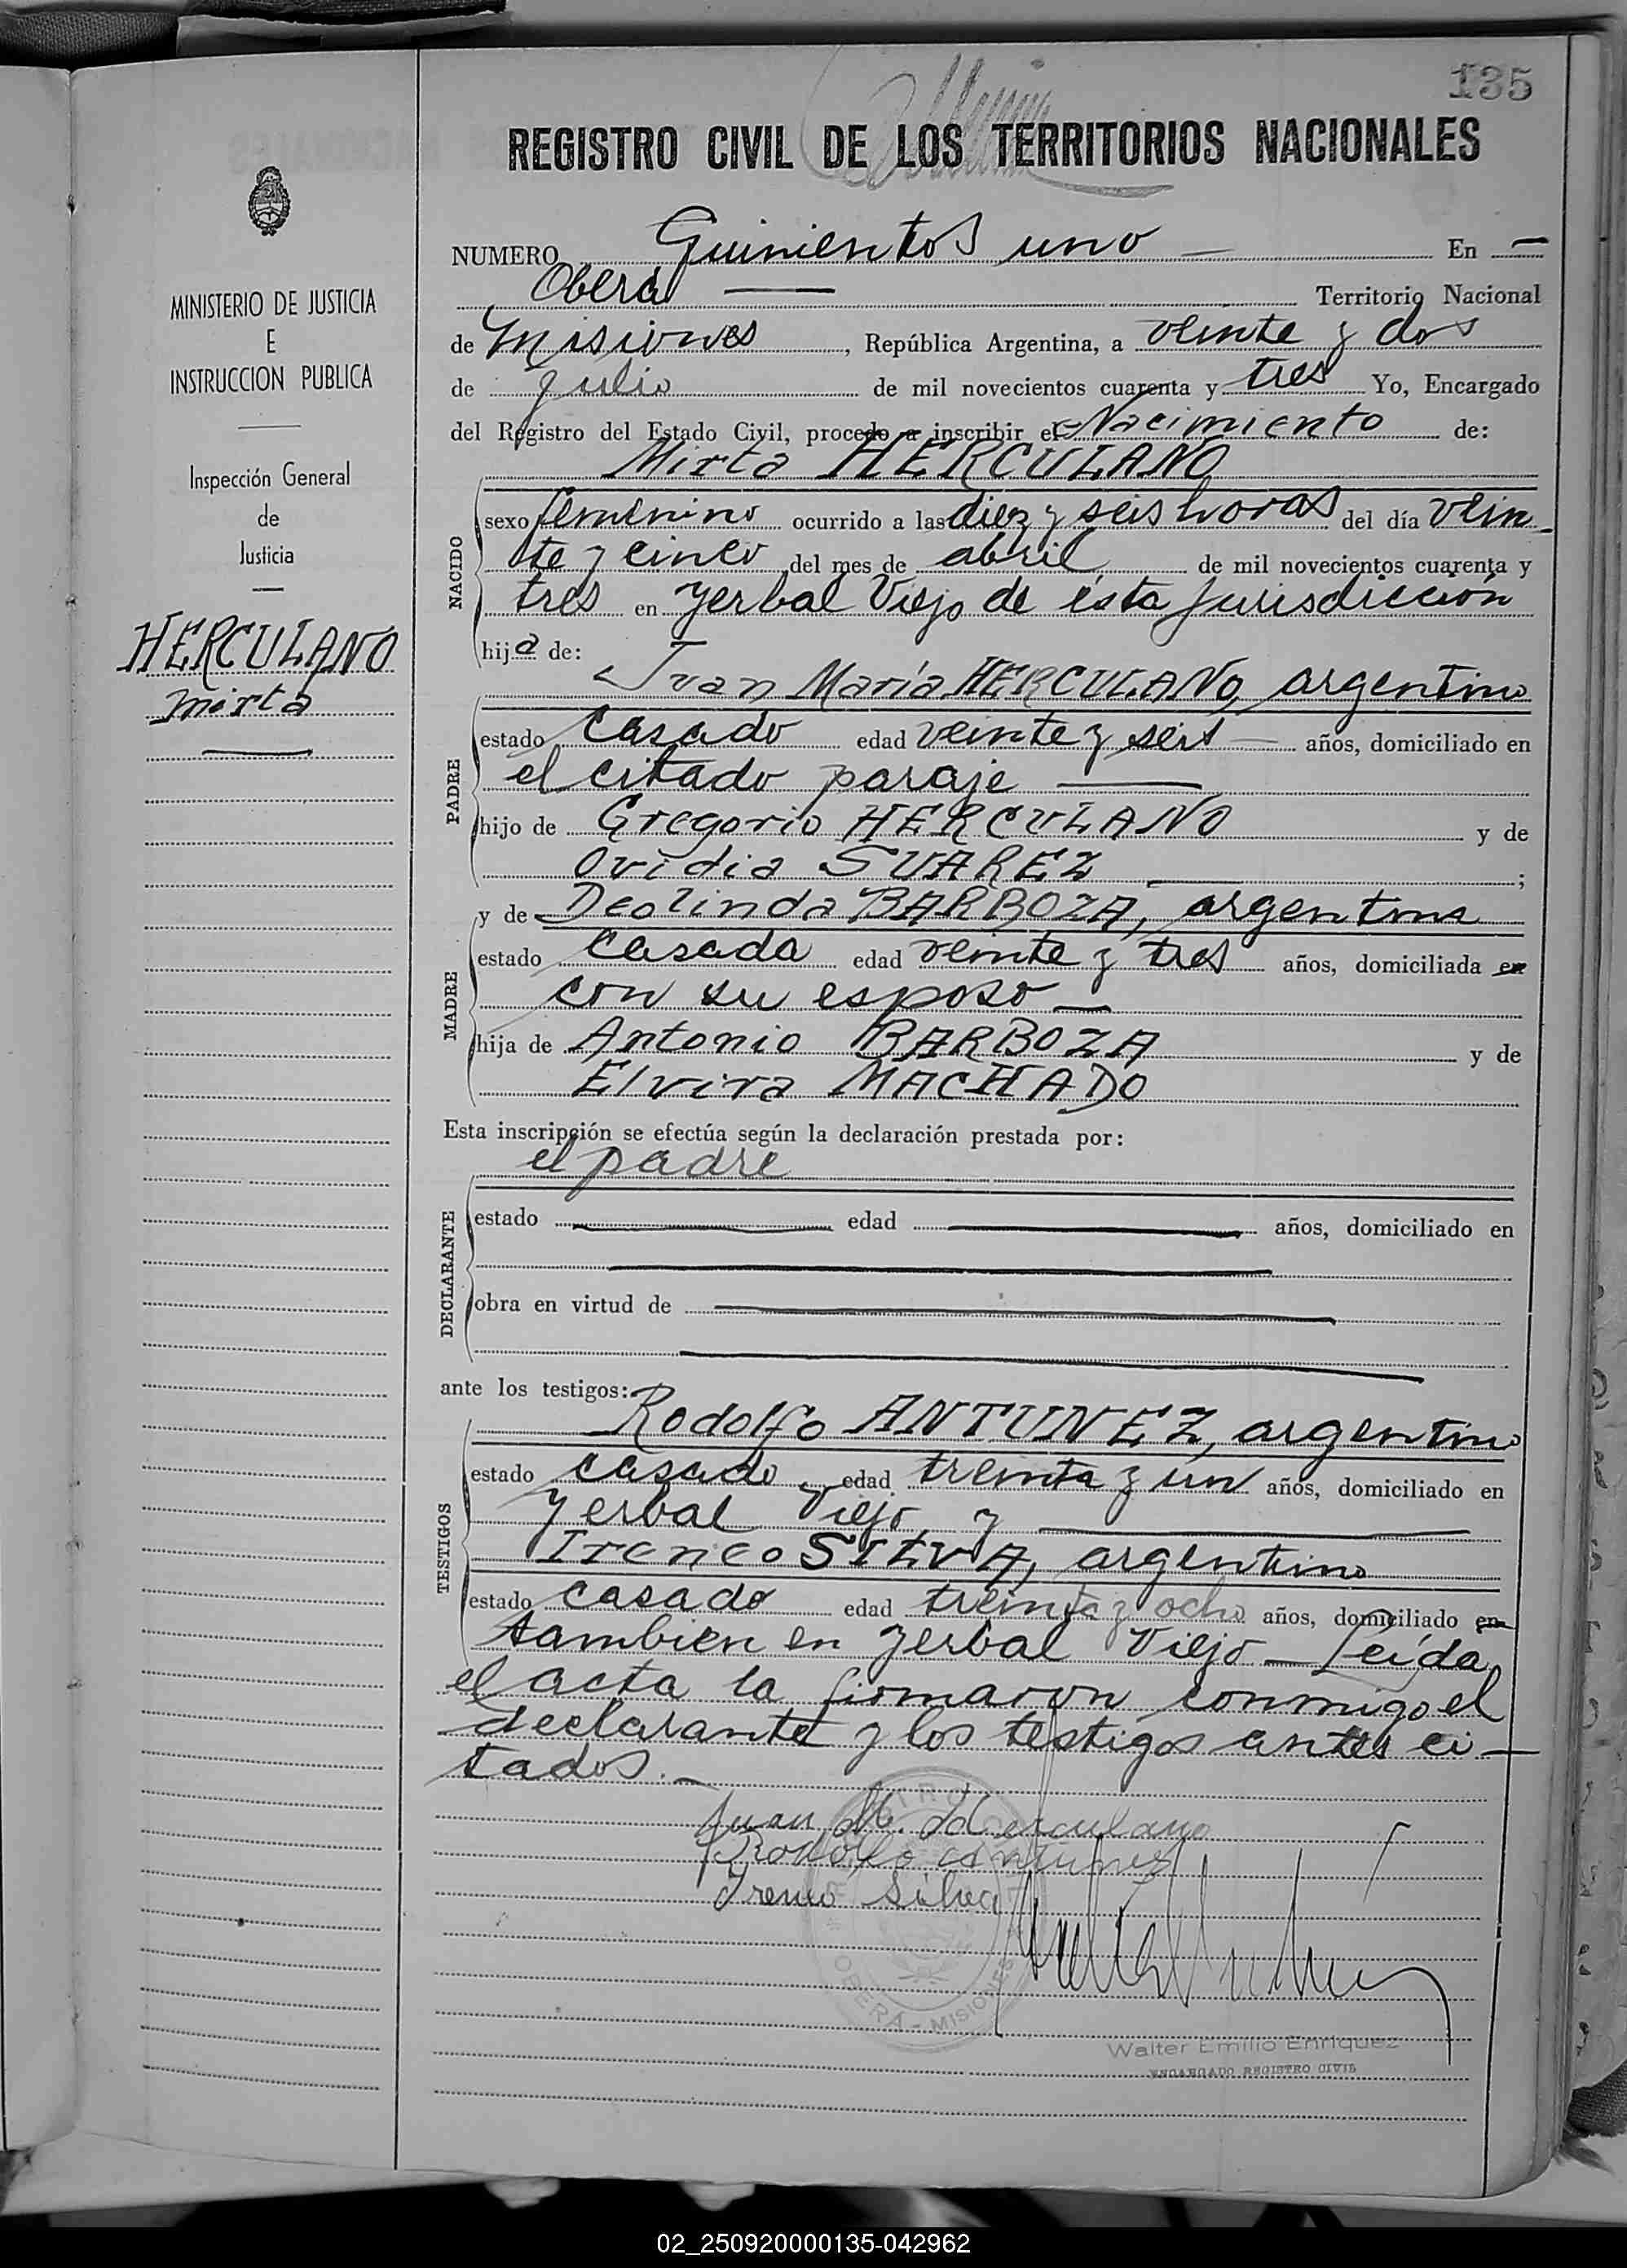 135
REGISTRO CIVIL DE LOS TERRITORIOS NACIONALES
MINISTERIO DE JUSTICIA
E
INSTRUCCION PUBLICA
Inspección General
de
Justicia
HERCULANO
Mirta
NUMERO Quinientos uno — En —
Oberá — Territorio Nacional
de Misiones, República Argentina, a veinte y dos
de Julio de mil novecientos cuarenta y tres Yo, Encargado
del Registro del Estado Civil, procedo a inscribir el Nacimiento de:
Mirta HERCULANO
NACIDO
sexo femenino ocurrido a las diez y seis horas del día vein-
te y cinco del mes de abril de mil novecientos cuarenta y
tres en Yerbal Viejo de esta Jurisdicción
hija de:
Juan María HERCULANO, argentino
PADRE
estado casado edad veinte y seis — años, domiciliado en
el citado paraje —
hijo de Gregorio HERCULANO y de
Ovidia SUAREZ — ;
y de Deolinda BARBOZA, argentina
MADRE
estado casada edad veinte y tres años, domiciliada en
con su esposo —
hija de Antonio BARBOZA y de
Elvira MACHADO
Esta inscripción se efectúa según la declaración prestada por:
el padre
DECLARANTE
estado — edad — años, domiciliado en
obra en virtud de —
ante los testigos:
Rodolfo ANTUNEZ, argentino
TESTIGOS
estado casado edad treinta y un años, domiciliado en
Yerbal Viejo y —
Ireneo SILVA, argentino
estado casado edad treinta y ocho años, domiciliado en
tambien en Yerbal Viejo — Leída
el acta la firmaron conmigo el
declarante y los testigos antes ci-
tados. —
Juan M. Herculano
Rodolfo antunez
Ireneo Silva
OBERA - MISIONES
Walter Emilio Enriquez
ENCARGADO REGISTRO CIVIL
02_250920000135-042962